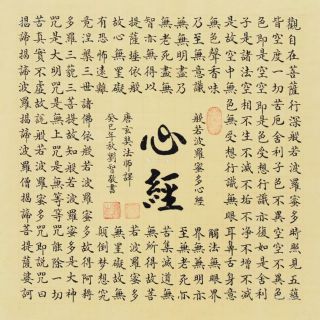 觀自在菩薩行深般若波羅蜜多時照見五蘊
皆空度一切苦厄舍利子色不異空空不異色
色即是空空即是色受想行識亦復如是舍利
子是諸法空相不生不滅不垢不淨不增不減
是故空中無色無受想行識無眼耳鼻舌身意
無色聲香味觸法無眼界
乃至無意識界無無明亦
無無明盡乃至無老死亦
無老死盡無苦集滅道無
智亦無得以無所得故菩
提薩埵依般若波羅蜜多
故心無罣礙無罣礙故無
有恐怖遠離顛倒夢想究
竟涅槃三世諸佛依般若波羅蜜多故得阿耨
多羅三藐三菩提故知般若波羅蜜多是大神
咒是大明咒是無上咒是無等等咒能除一切
苦真實不虛故說般若波羅蜜多咒即說咒曰
揭諦揭諦波羅揭諦波羅僧揭諦菩提薩婆訶
般若波羅蜜多心經
心經
唐玄奘法師譯
癸巳年秋劉智嚴書